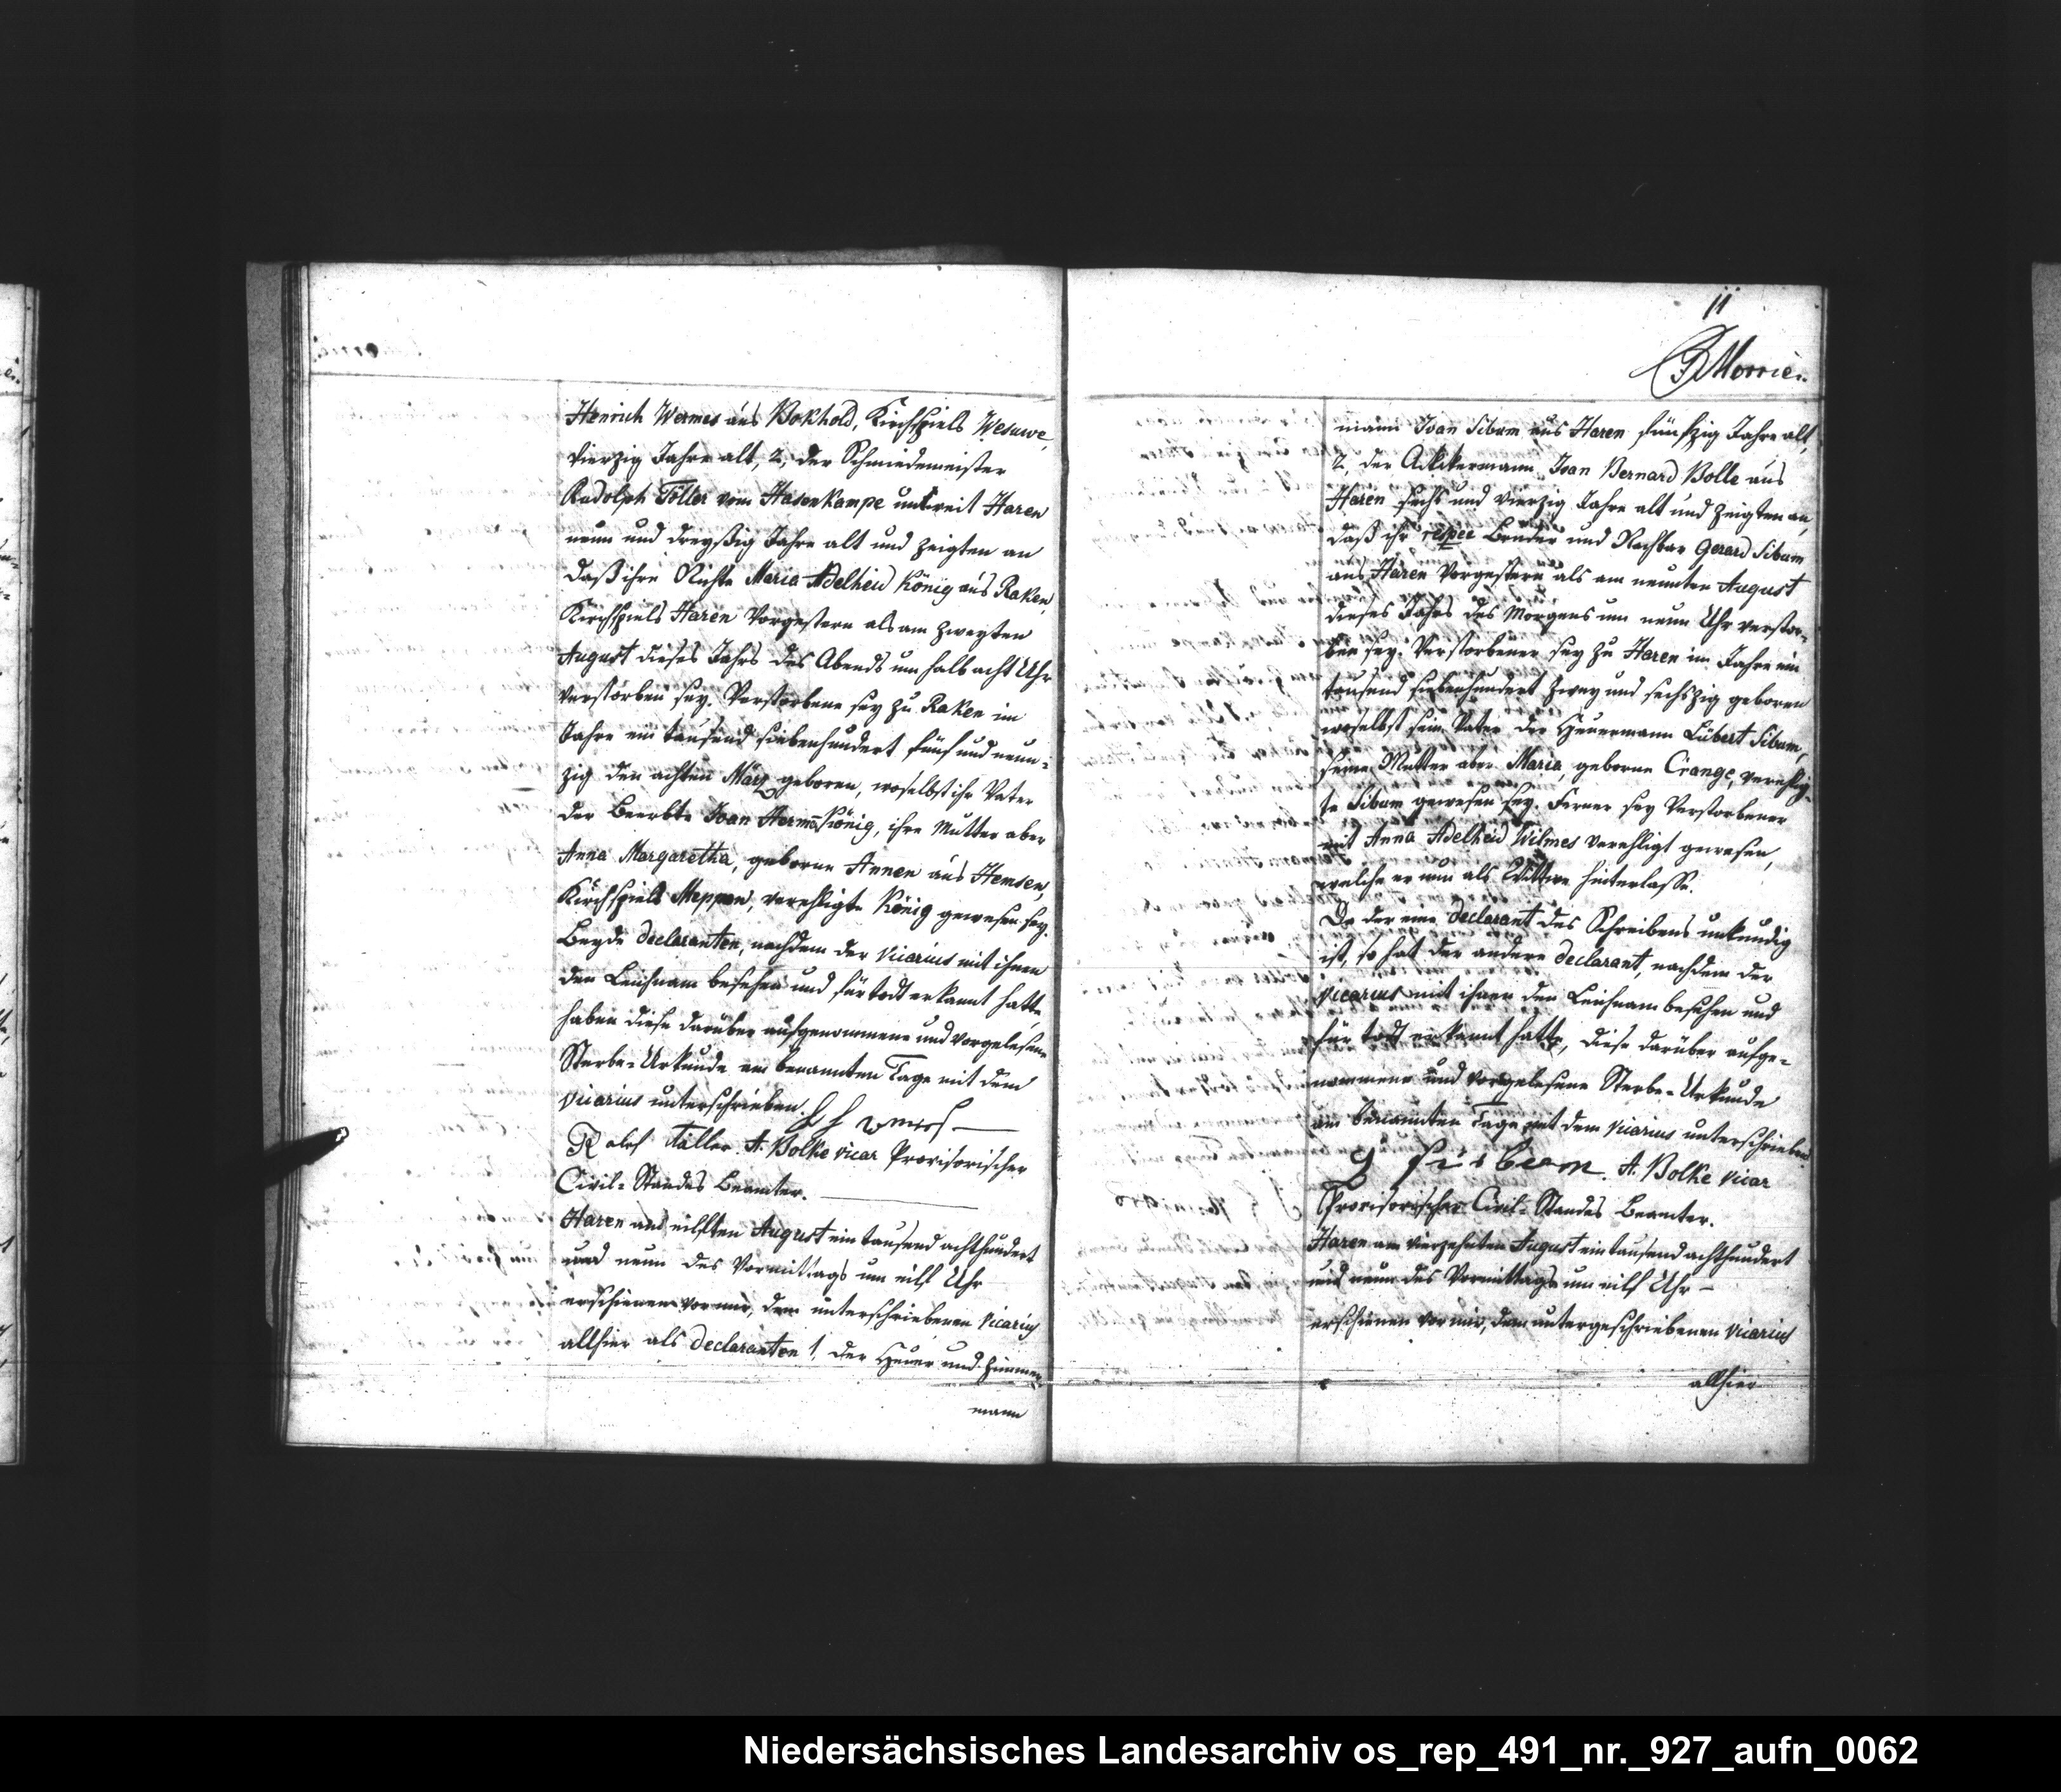 Henrich Wermes aus Bokhold, Kirchspiels Wesuwe,
vierzig Jahre alt, 2, der Schmiedemeister
Rudolph Töller vom Hasenkampe unweit Haren
neun und dreyßig Jahre alt und zeigten an
daß ihre Nichte Maria Adelheid König aus Raken,
Kirchspiels Haren vorgestern als am zweyten
August dieses Jahrs des Abends um halb acht Uhr
verstorben sey. Verstorbene sey zu Raken im
Jahre ein tausend siebenhundert fünf und neun-
zig den achten März geboren, woselbst ihr Vater
der Beerbte Joan Herm König, ihre Mutter aber
Anna Margaretha, geborne Annen aus Hemsen,
Kirchspiels Meppen, verehligte König gewesen sey.
Beyde declaranten, nachdem der Vicarius mit ihnen
den Leichnam besehen und für todt erkannt hatte,
haben diese darüber aufgenommene und vorgelesene
Sterbe-Urkunde am benannten Tage mit dem
Vicarius unterschrieben.
Rolef Töller. A. Bolke vicar Provisorischer
Civil-Standes Beamter.
Haren am eilften August ein tausend achthundert
und neun des Vormittags um eilf Uhr
erschienen vor mir, dem unterschriebenen Vicarius
allhier als declaranten 1, der Heuer und Zimmer-
mann
11
Morrien
mann Joan Sibum aus Haren fünfzig Jahre alt,
2, der Ackkermann Joan Bernard Bolle aus
Haren sechs und vierzig Jahre alt und zeigten an,
daß ihr respee Bruder und Nachbar Gerard Sibum
aus Haren vorgestern als am neunten August
dieses Jahrs des Morgens um neun Uhr verstor-
ben sey. Verstorbener sey zu Haren im Jahre ein
tausend siebenhundert zwey und sechszig geboren
woselbst sein Vater der Heuermann Lübert Sibum,
seine Mutter aber Maria, geborne Crange, verehlig-
te Sibum gewesen sey. Ferner sey Verstorbener
mit Anna Adelheid Wilmes verehligt gewesen,
welche er nun als Wittwe hinterlasse.
Da der eine declarant des Schreibens unkundig
ist, so hat der andere declarant, nachdem der
Vicarius mit ihnen den Leichnam besehen und
für todt erkannt hatte, diese darüber aufge-
nommene und vorgelesene Sterbe-Urkunde
am benannten Tage mit dem Vicarius unterschrieben
A. Bolke vicar
Provisorischer Civil-Standes Beamter.
Haren am vierzehnten August ein tausend achthundert
und neun des Vormittags um eilf Uhr –
erschienen vor mir, dem untergeschriebenen Vicarius
allhier
Niedersächsisches Landesarchiv os_rep_491_nr._927_aufn_0062